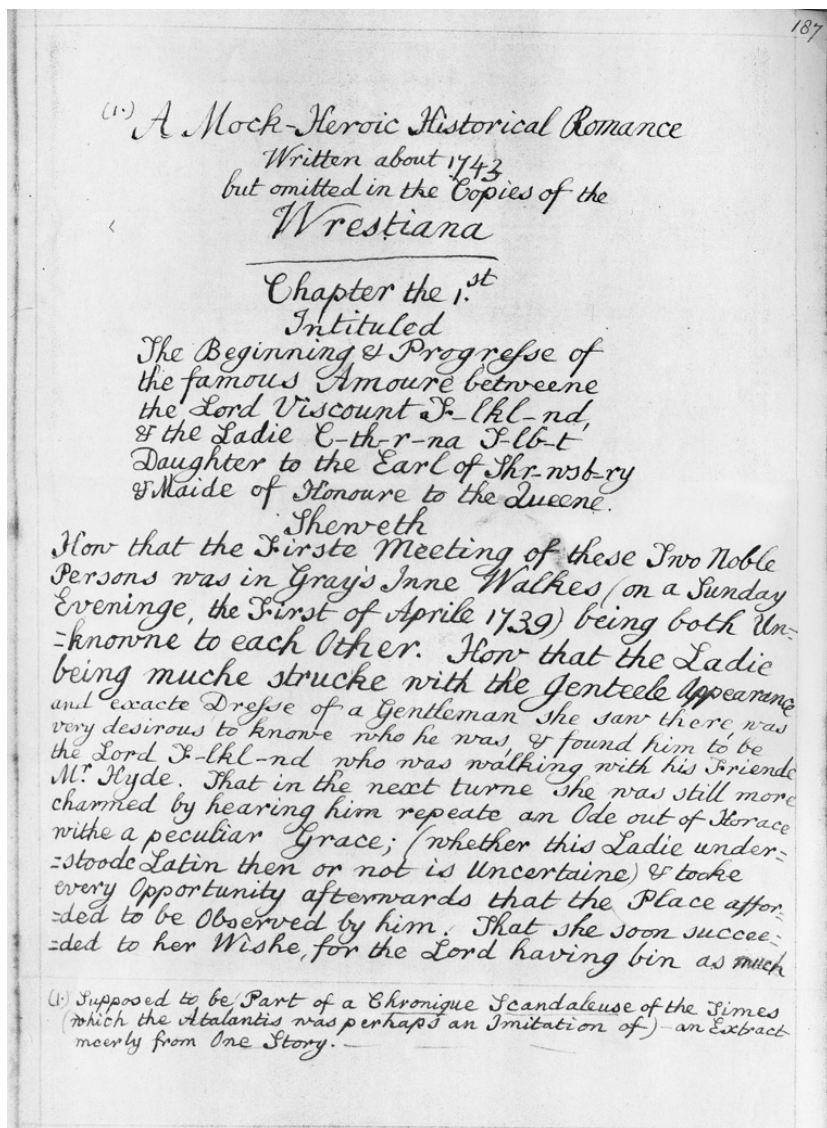 187
(1.) A Mock-Heroic Historical Romance
Written about 1743
but omitted in the Copies of the
Wrestiana
Chapter the 1.st
Intituled
The Beginning & Progresse of
the famous Amoure betweene
the Lord Viscount F-lkl-nd,
& the Ladie C-th-r-na T-lb-t
Daughter to the Earl of Shr-wsb-ry
& Maide of Honoure to the Queene.
Sheweth
How that the Firste Meeting of these Two Noble
Persons was in Gray's Inne Walkes (on a Sunday
Eveninge, the First of Aprile 1739) being both Un=
=knowne to each Other. How that the Ladie
being muche strucke with the Genteele Appearance
and exacte Dresse of a Gentleman she saw there, was
very desirous to knowe who he was, & found him to be
the Lord F-lkl-nd who was walking with his Friende
Mr Hyde. That in the next turne she was still more
charmed by hearing him repeate an Ode out of Horace
withe a peculiar Grace; (whether this Ladie under=
=stoode Latin then or not is Uncertaine) & tooke
every Opportunity afterwards that the Place affor=
=ded to be Observed by him. That she soon succee=
=ded to her Wishe, for the Lord having bin as much
(1.) Supposed to be Part of a Chronique Scandaleuse of the Times
(which the Atalantis was perhaps an Imitation of) - an Extract
meerly from One Story.